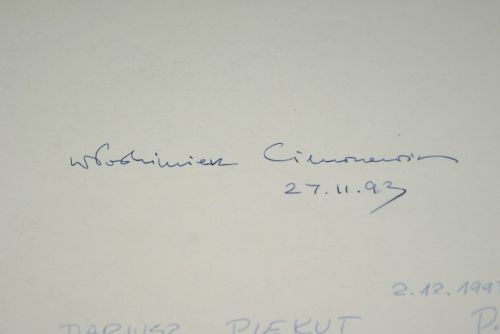 Włodzimierz Cimoszewicz
27.11.93
2.12.199
DARIUSZ PIEKUT P.